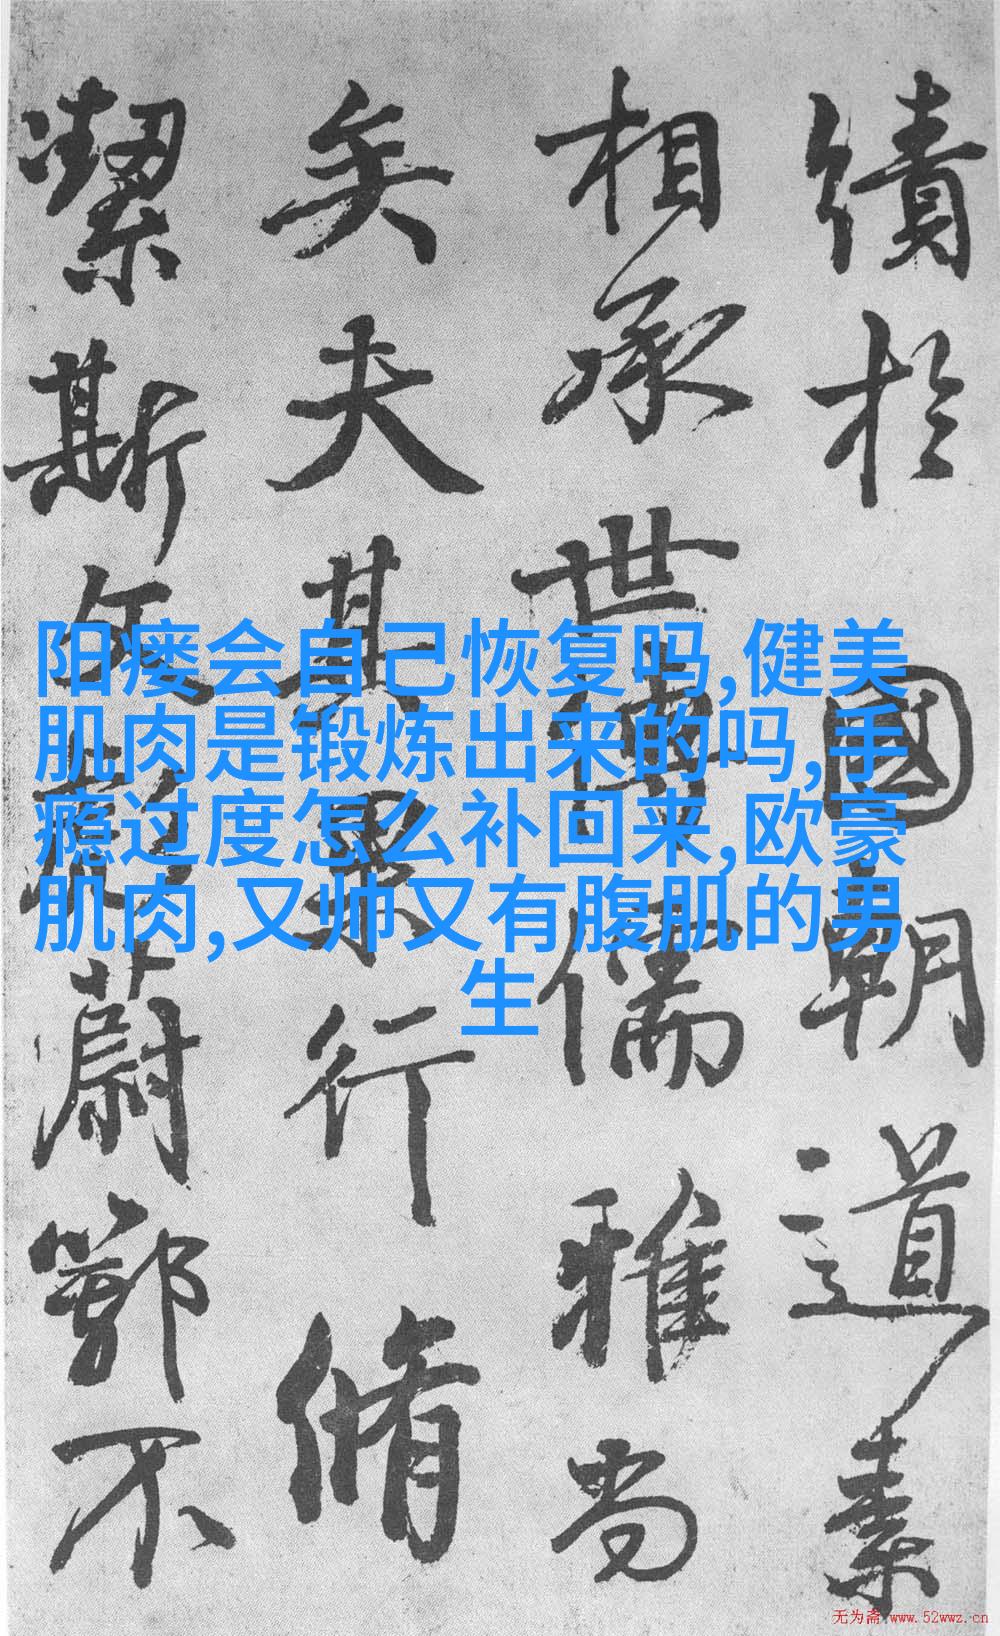 績於國朝道素
相承世傳儒雅尚
矣夫其絜行脩
潔斯文彪蔚鄂不
阳痿会自己恢复吗,健美
肌肉是锻炼出来的吗,手
瘾过度怎么补回来,欧豪
肌肉,又帅又有腹肌的男
生
无为斋 www.52wwz.cn